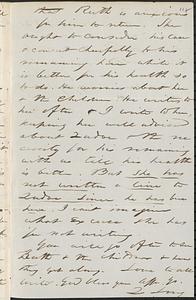 that Ruth is anxious
for him to return. He
ought to consider his case
& consent cheerfully to his
remaining here while it
is better for his health so
to do. He worries about her
& the children. She writes to
her often & I wrote to her
about the ne-
cessity for his remaining
with us till his health
is better. But She has
not written a line to
since he has been
here. I can't imagine
what excuse She has
for not writing
you will go often to see
Ruth & the children & how
they get along. Love to all
write. God bless you